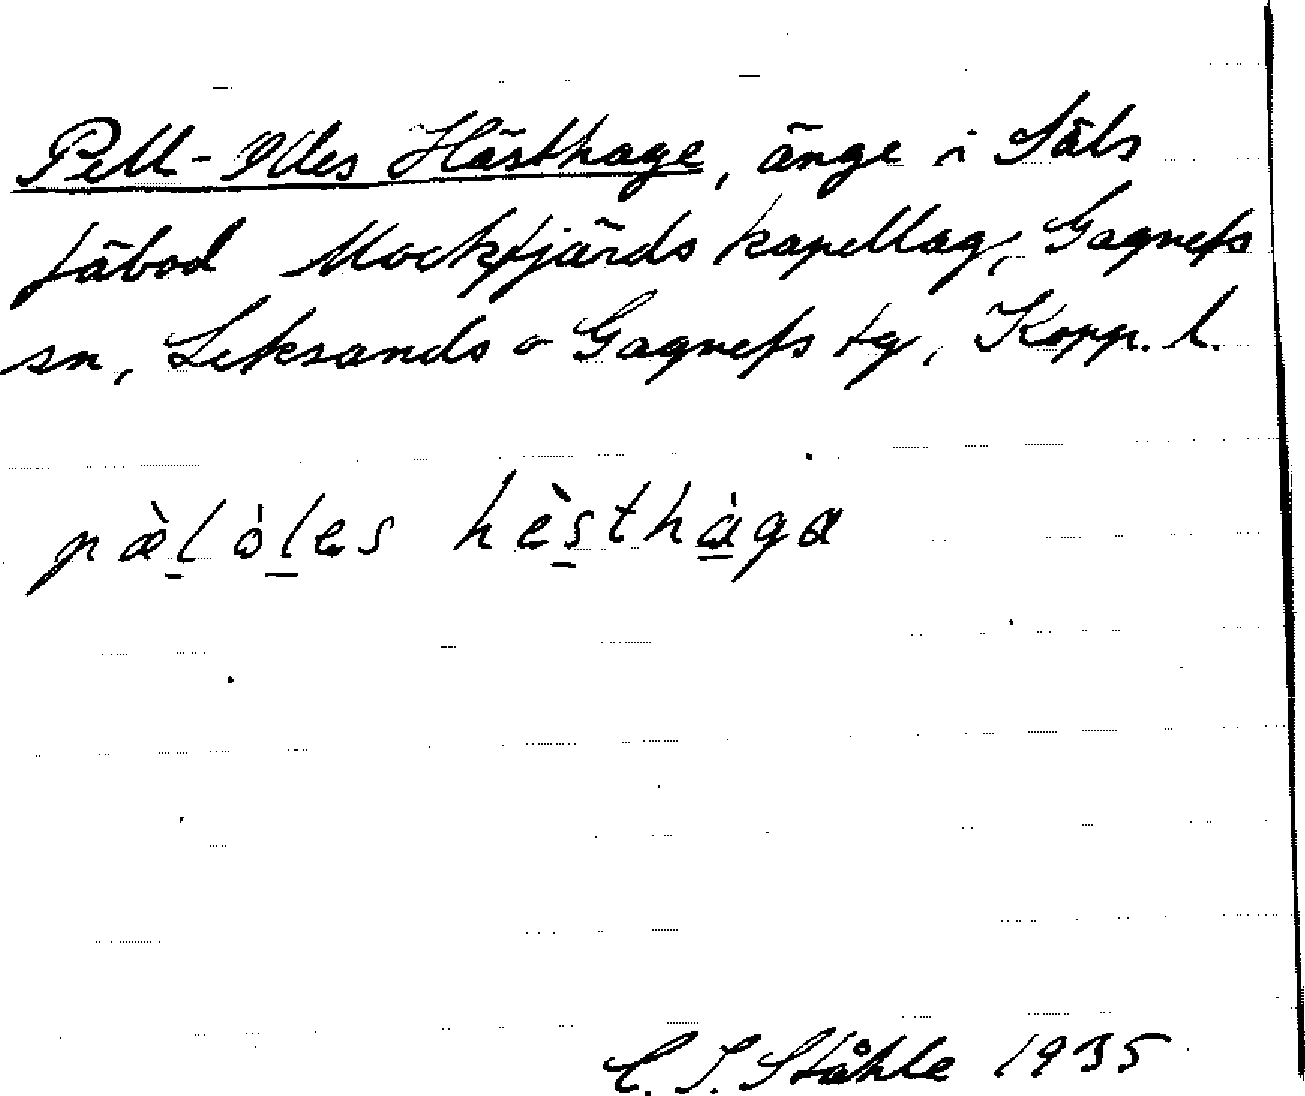 Pell-Oles Hästhage, änge i Säls
fäbod Mockfjärds kapellag, Gagnefs
sn, Leksands o Gagnefs tg, Kopp. l.
pæ̀l ò̀les hèsthàga
C. I. Ståhle 1935